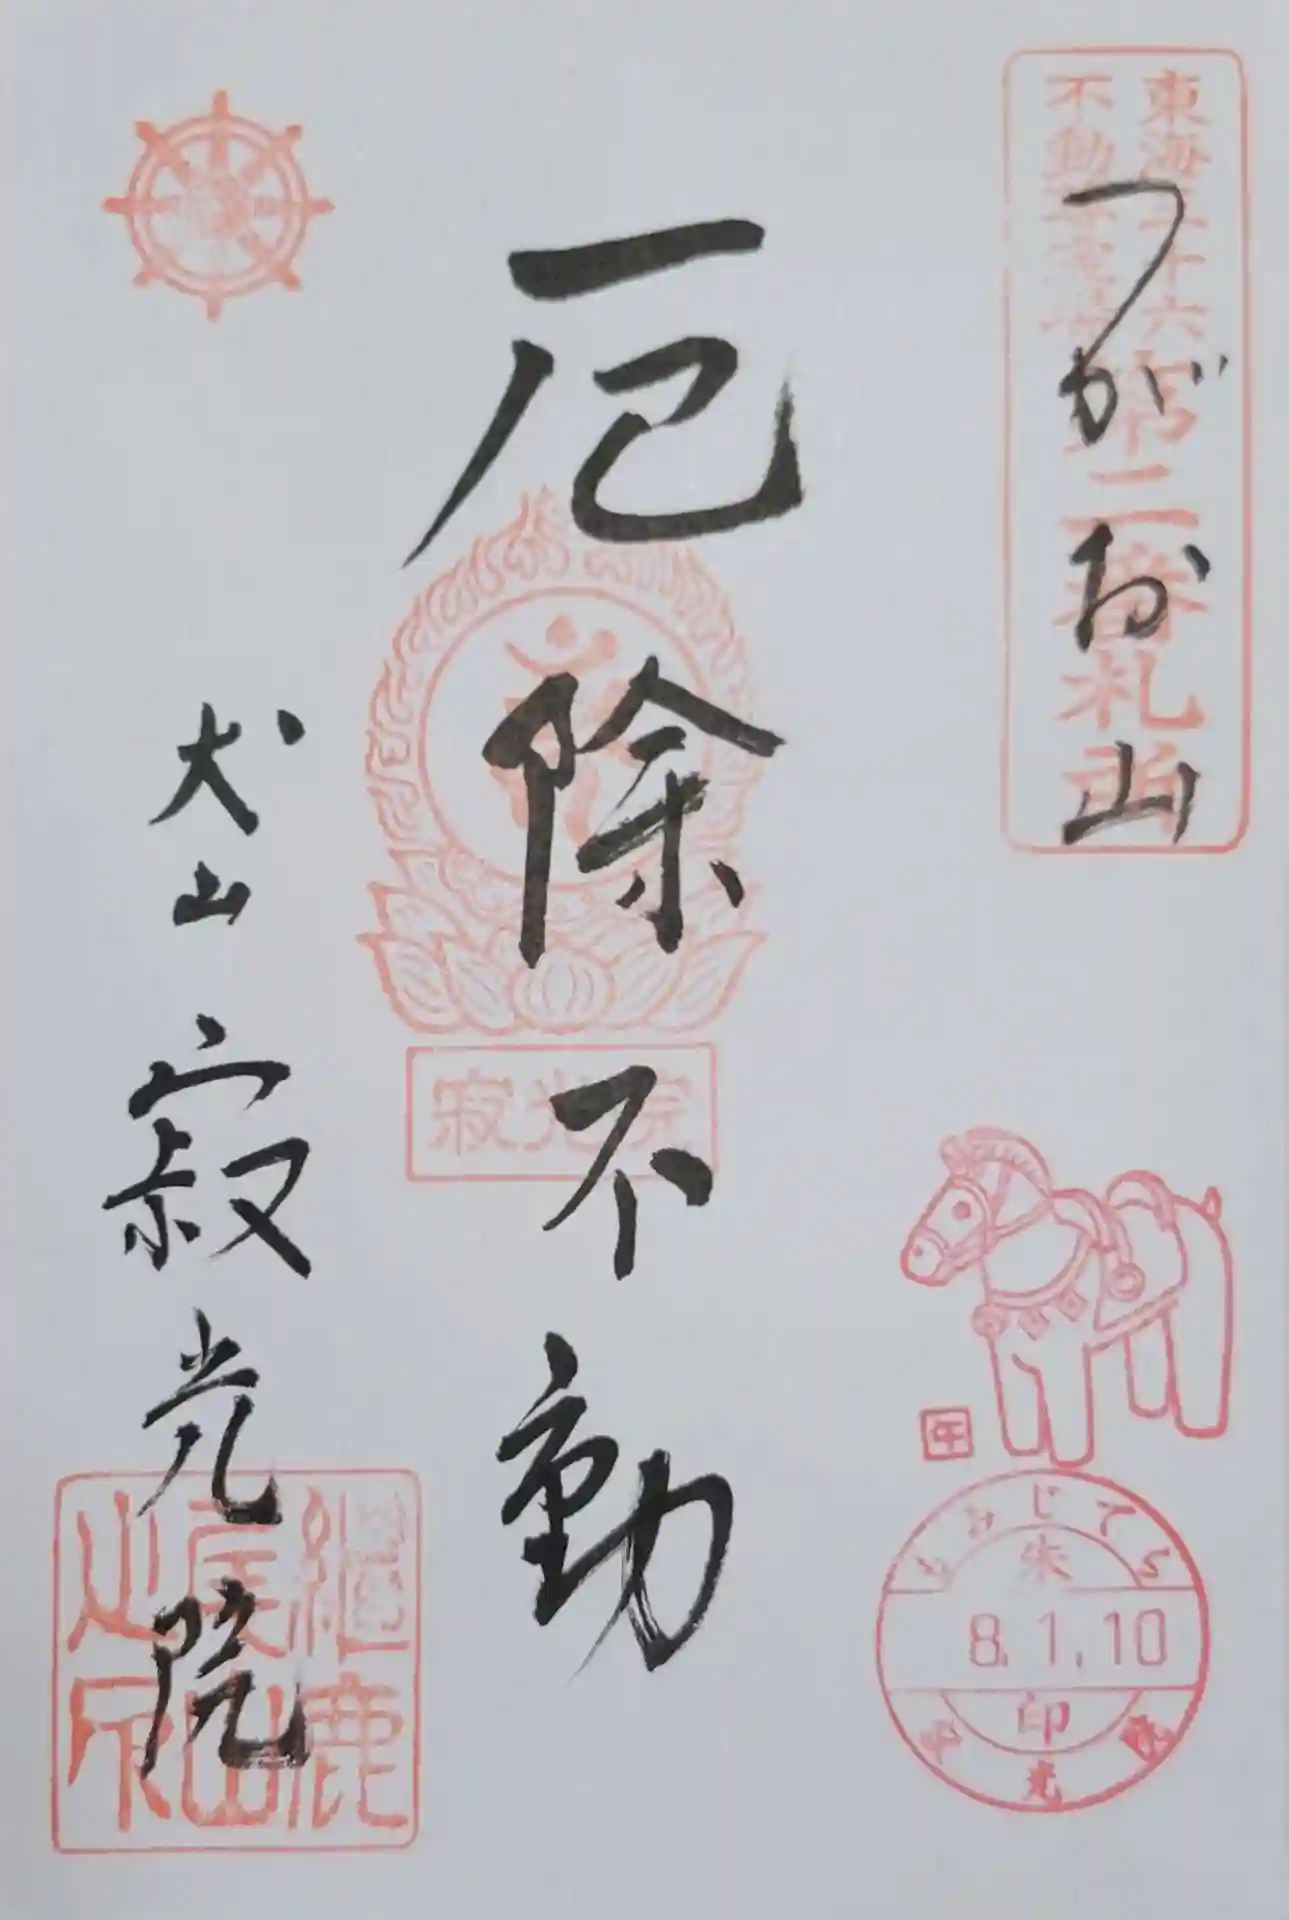 東海三十六
不動尊霊場
第二番札所
つがお山
厄除不動
寂光院
犬山
寂光院
午
もみじでら
朱
8.1.10
印
寂光院
継鹿
尾山
之印